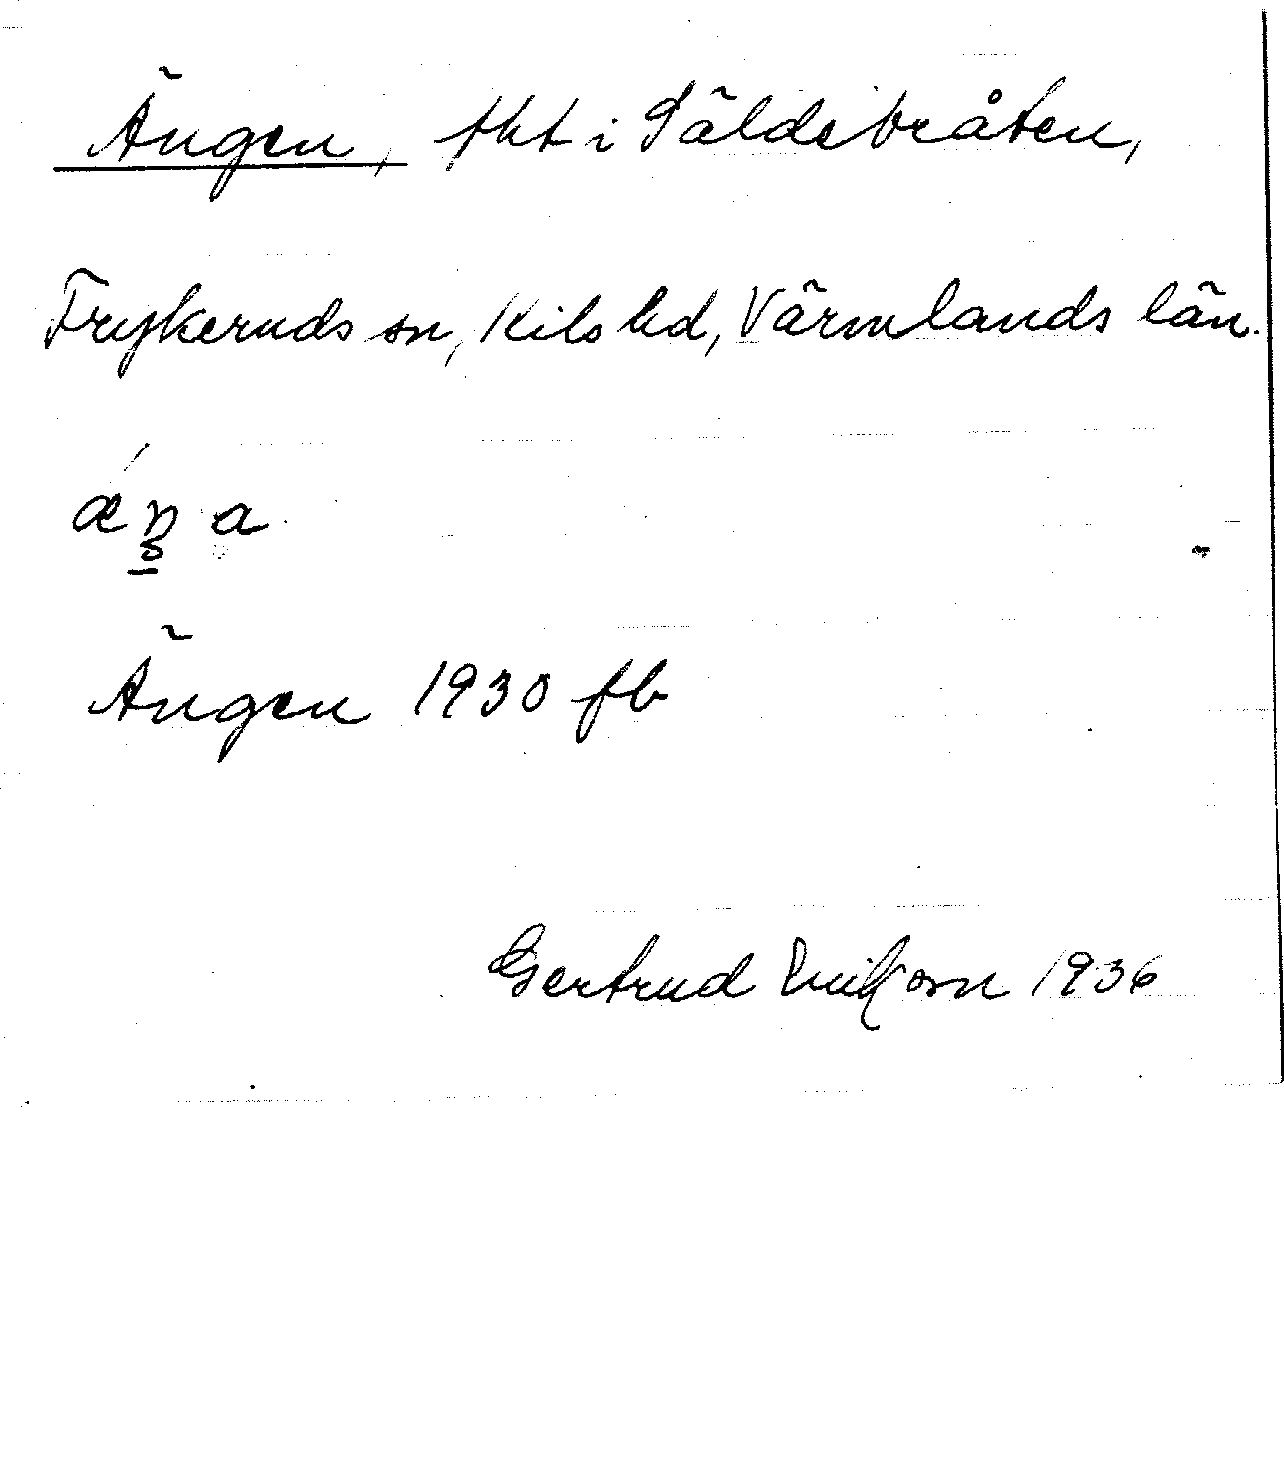 Ängen, fht i Säldebråten,
Frykeruds sn, Kils hd, Värmlands län.
Ängen 1930 fb
Gertrud Erikson 1936